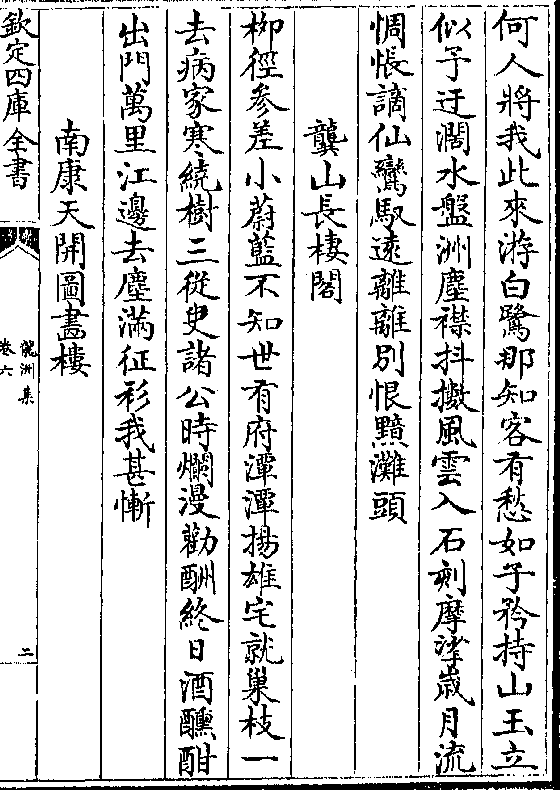 何人將我此來游白鷺那知客有愁如子矜持山玉立
似予迂濶水盤洲塵襟抖擻風雲入石刻摩挲歲月流
惆悵謫仙鸞馭逺離離别恨黯灘頭
龔山長棲閣
柳徑參差小蔚藍不知世有府潭潭揚雄宅就巢枝一
去病家寒繞樹三從史諸公時爛漫勸酬終日酒醺酣
出門萬里江邊去塵滿征衫我甚慚
南康天開圖畵樓
欽定四庫全書
洲集
卷六
二